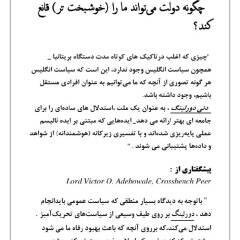 چگونه دولت می‌تواند ما را (خوشبخت تر) قانع
کند؟
"چیزی که اغلب درتاکیک های کوتاه مدت دستگاه بریتانیا _
همچون سیاست انگلیس وجود ندارد، این است که سیاست انگلیس
هر گونه تصوری از آنچه که ما می‌توانیم به عنوان افرادی مستقل
باشیم، وجود داشته باشد.
دنی دورلینگ، به عنوان یک ملت، استدلال های ساده‌ای را برای
جامعه ای بهتر ارائه می دهد_ایده‌هایی که مبتنی بر ایده تالیسم
عملی پایه‌ریزی شده‌اند و با تفسیری زیرکانه (هوشمندانه) از شواهد
و داده‌ها پشتیبانی می شوند . "
پیشگفتاری از :
Lord Victor O. Adebowale, Crossbench Peer
"باتوجه به دیدگاه بسیار منطقی که سیاست عمومی بایدانجام
دهد ، دورلینگ بر روی طیف وسیعی از سیاست‌های تحریک‌آمیز .
استدلال می‌کند،که برروی آنچه که باعث بهبود رفاه ما می شود